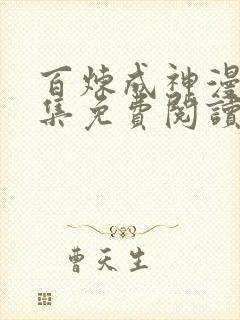 百煉成神漫
集免費閱讀
曹天生